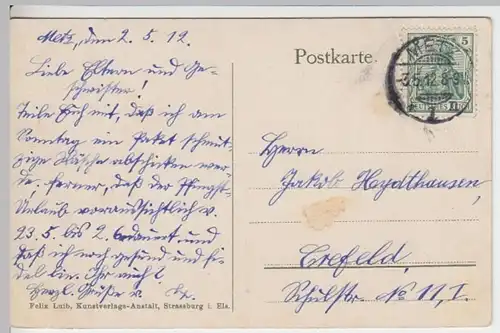 Metz, den 2. 5. 12.
Liebe Eltern und Ge-
schwister!
Teile Euch mit, daß ich am
Sonntag ein Paket schmut-
zige Wäsche abschicken wer-
de. ferner, daß der Pfingst-
Urlaub voraussichtlich v.
23.5. bis 2. 6 dauert und
daß ich noch gesund und fi-
del bin. Ihr auch?
Herzl. Grüße v.
Felix Luib, Kunstverlags-Anstalt, Strassburg i. Els.
Postkarte.
5
METZ
3.5.12. 8-9
1
Herrn
Jakob Heydthausen,
Crefeld,
Schulstr. No 11, I.